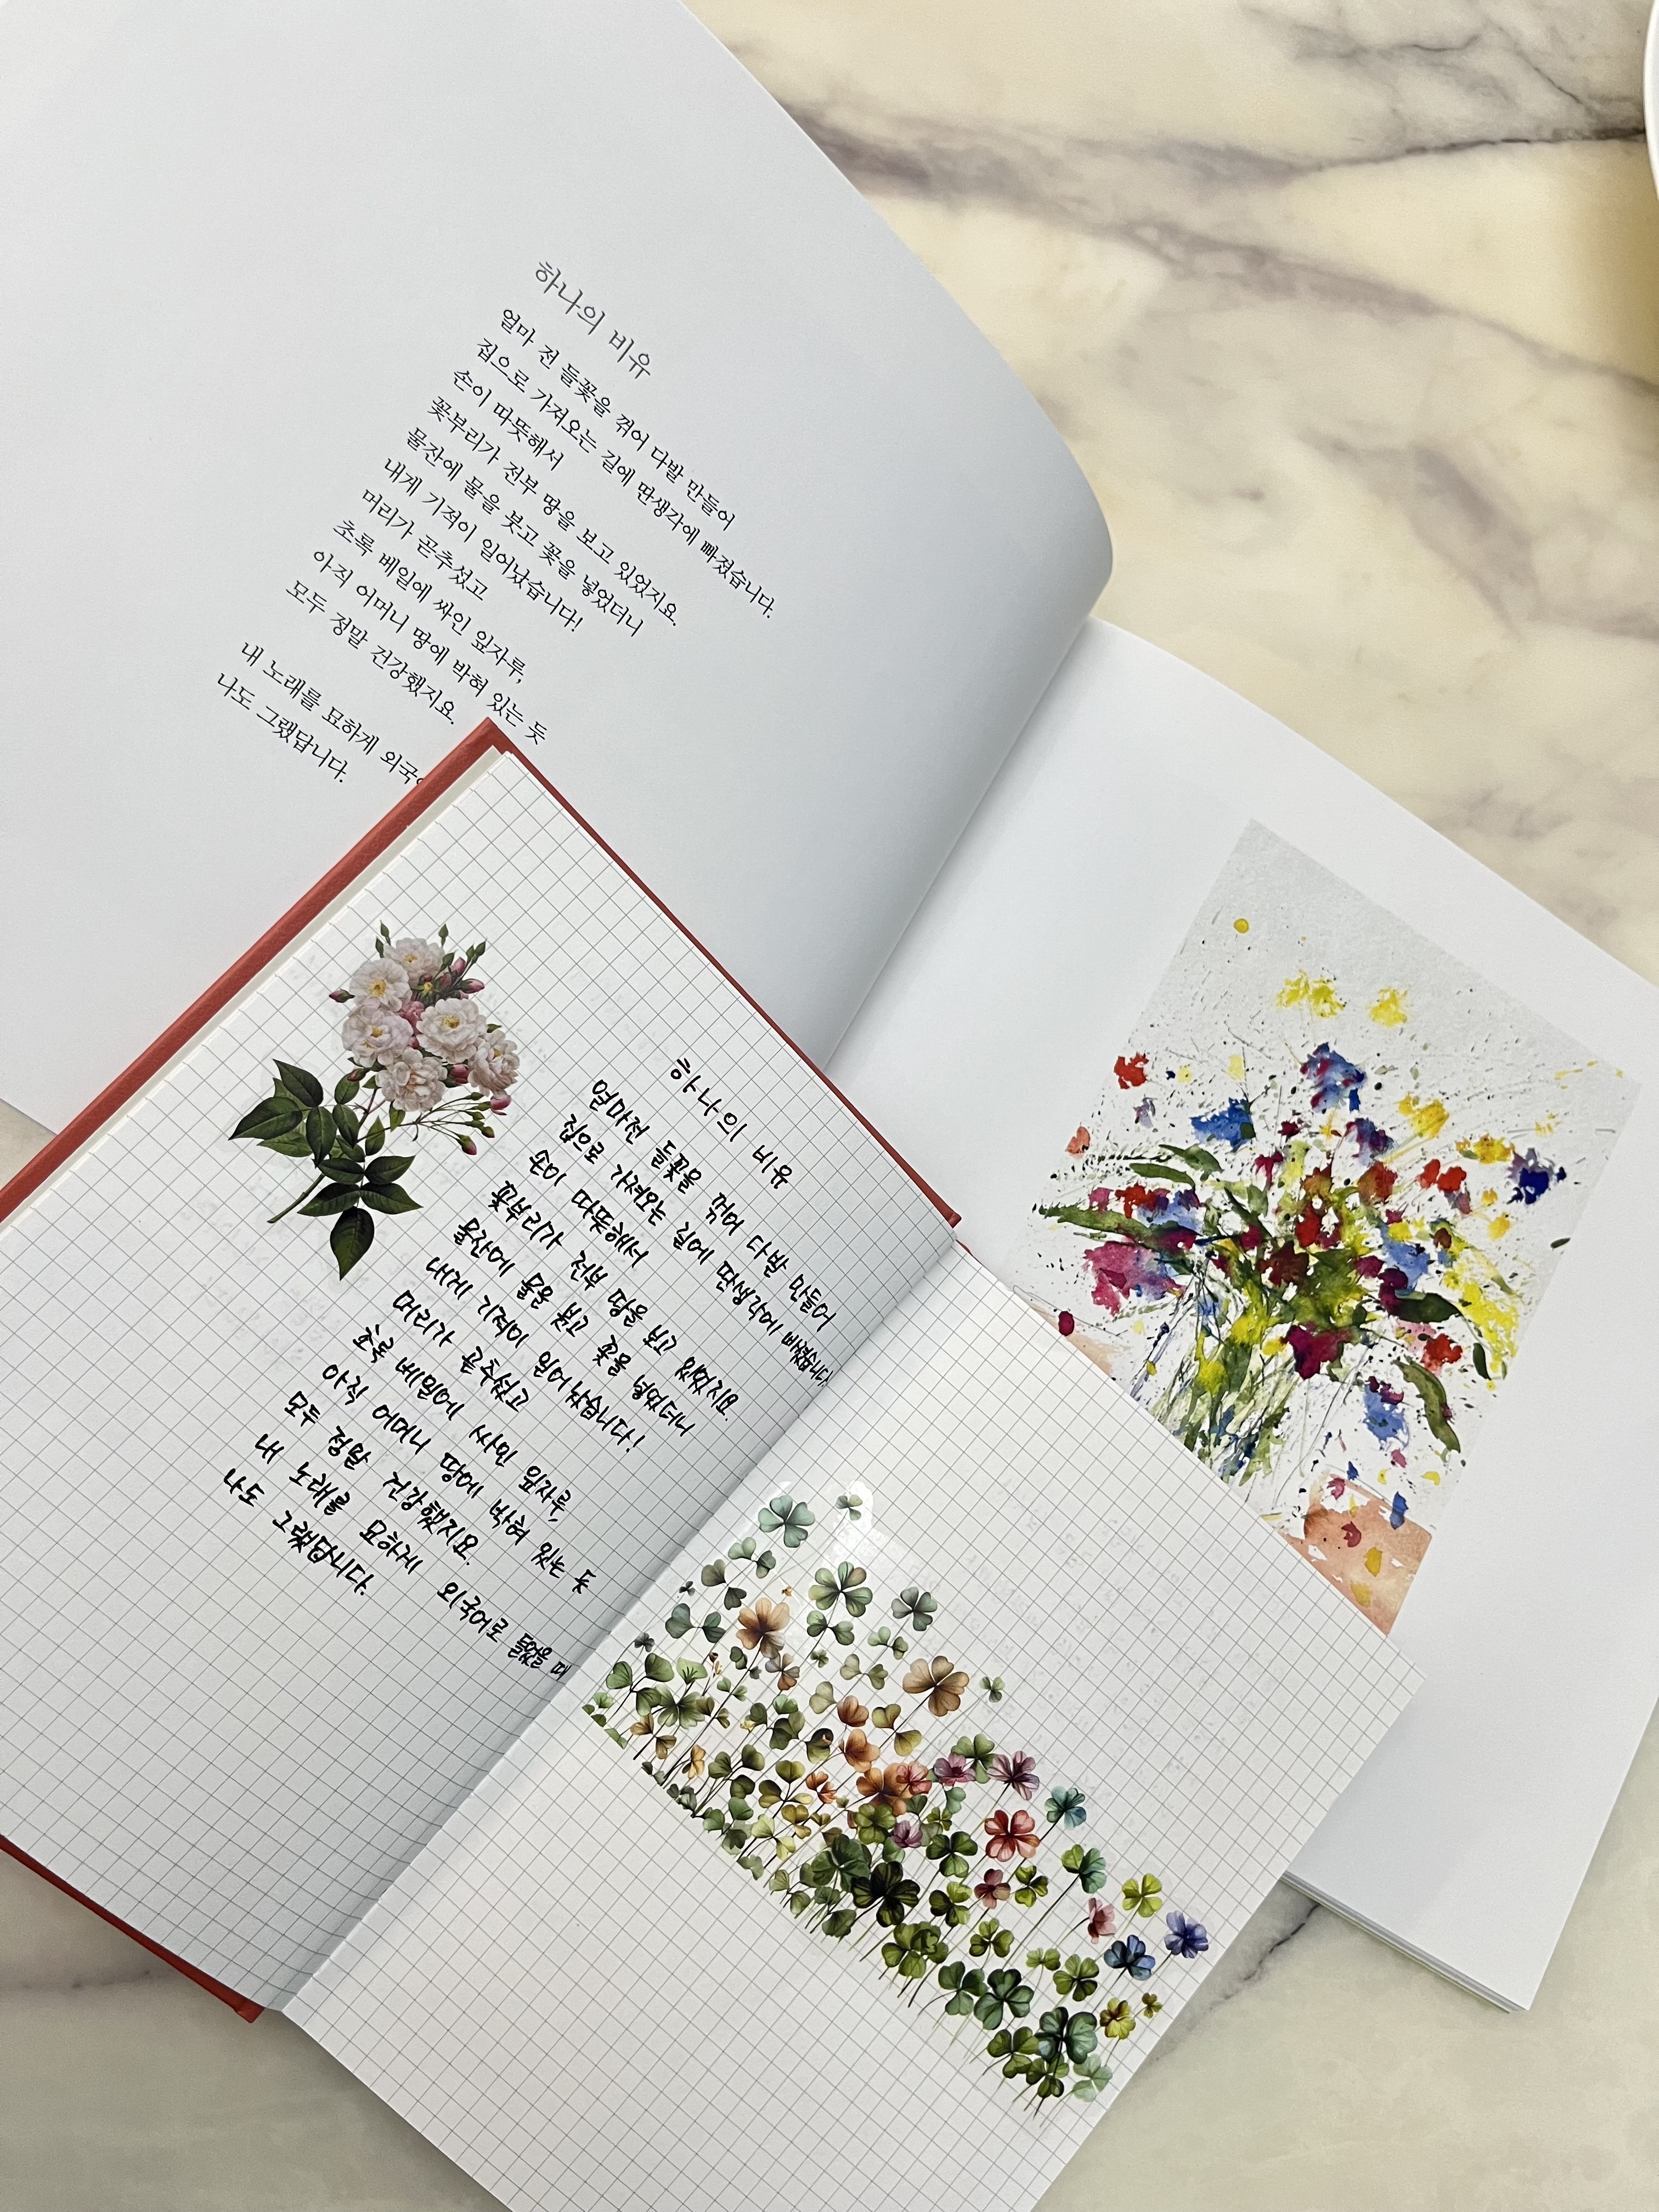 하나의 비유
얼마 전 들꽃을 꺾어 다발 만들어
집으로 가져오는 길에 딴생각에 빠졌습니다.
손이 따뜻해서
꽃부리가 전부 땅을 보고 있었지요.
물잔에 물을 붓고 꽃을 넣었더니
내게 기적이 일어났습니다!
머리가 곧추섰고
초록 베일에 싸인 잎자루,
아직 어머니 땅에 박혀 있는 듯
모두 정말 건강했지요.
내 노래를 묘하게 외국어
나도 그랬답니다.
하나의 비유
얼마전 들꽃을 꺾어 다발 만들어
집으로 가져오는 길에 딴생각에 빠졌습니다.
손이 따뜻해서
꽃부리가 전부 땅을 보고 있었지요.
물잔에 물을 붓고 꽃을 넣었더니
내게 기적이 일어났습니다!
머리가 곧추섰고
초록 베일에 싸인 잎자루,
아직 어머니 땅에 박혀 있는 듯
모두 정말 건강했지요.
내 노래를 묘하게 외국어로 들었을 때
나도 그랬답니다.